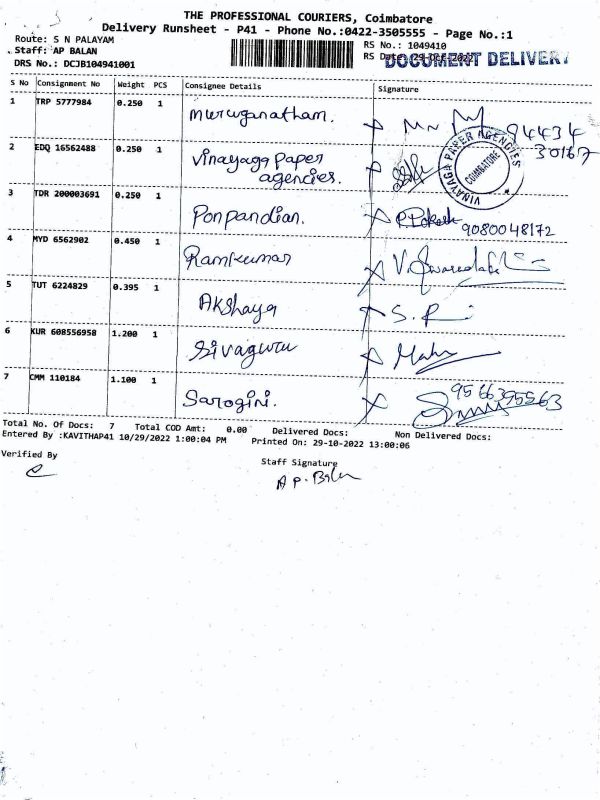 THE PROFESSIONAL COURIERS, Coimbatore
Delivery Runsheet - P41 - Phone No.:0422-3505555 - Page No.:1
Route: S N PALAYAM
Staff: AP BALAN
DRS No.: DCJB104941001
RS No.: 1049410
RS Date: 29-Oct-2022
DOCUMENT DELIVERY
S No Consignment No Weight PCS Consignee Details Signature
1 TRP 5777984 0.250 1 Muruganatham. 94434 30167
2 EDQ 16562488 0.250 1 Vinayaga Paper agencies.
VINAYAGA PAPER AGENCIES COIMBATORE
3 TDR 200003691 0.250 1 Ponpandian. 9080048172
4 MYD 6562902 0.450 1 Ramkumar
5 TUT 6224829 0.395 1 Akshaya S.
6 KUR 608556958 1.200 1 Sivaguru
7 CMM 110184 1.100 1 Sarogini. 9566395563
Total No. Of Docs: 7 Total COD Amt: 0.00 Delivered Docs: Non Delivered Docs:
Entered By :KAVITHAP41 10/29/2022 1:00:04 PM Printed On: 29-10-2022 13:00:06
Verified By
Staff Signature
A P. Balan